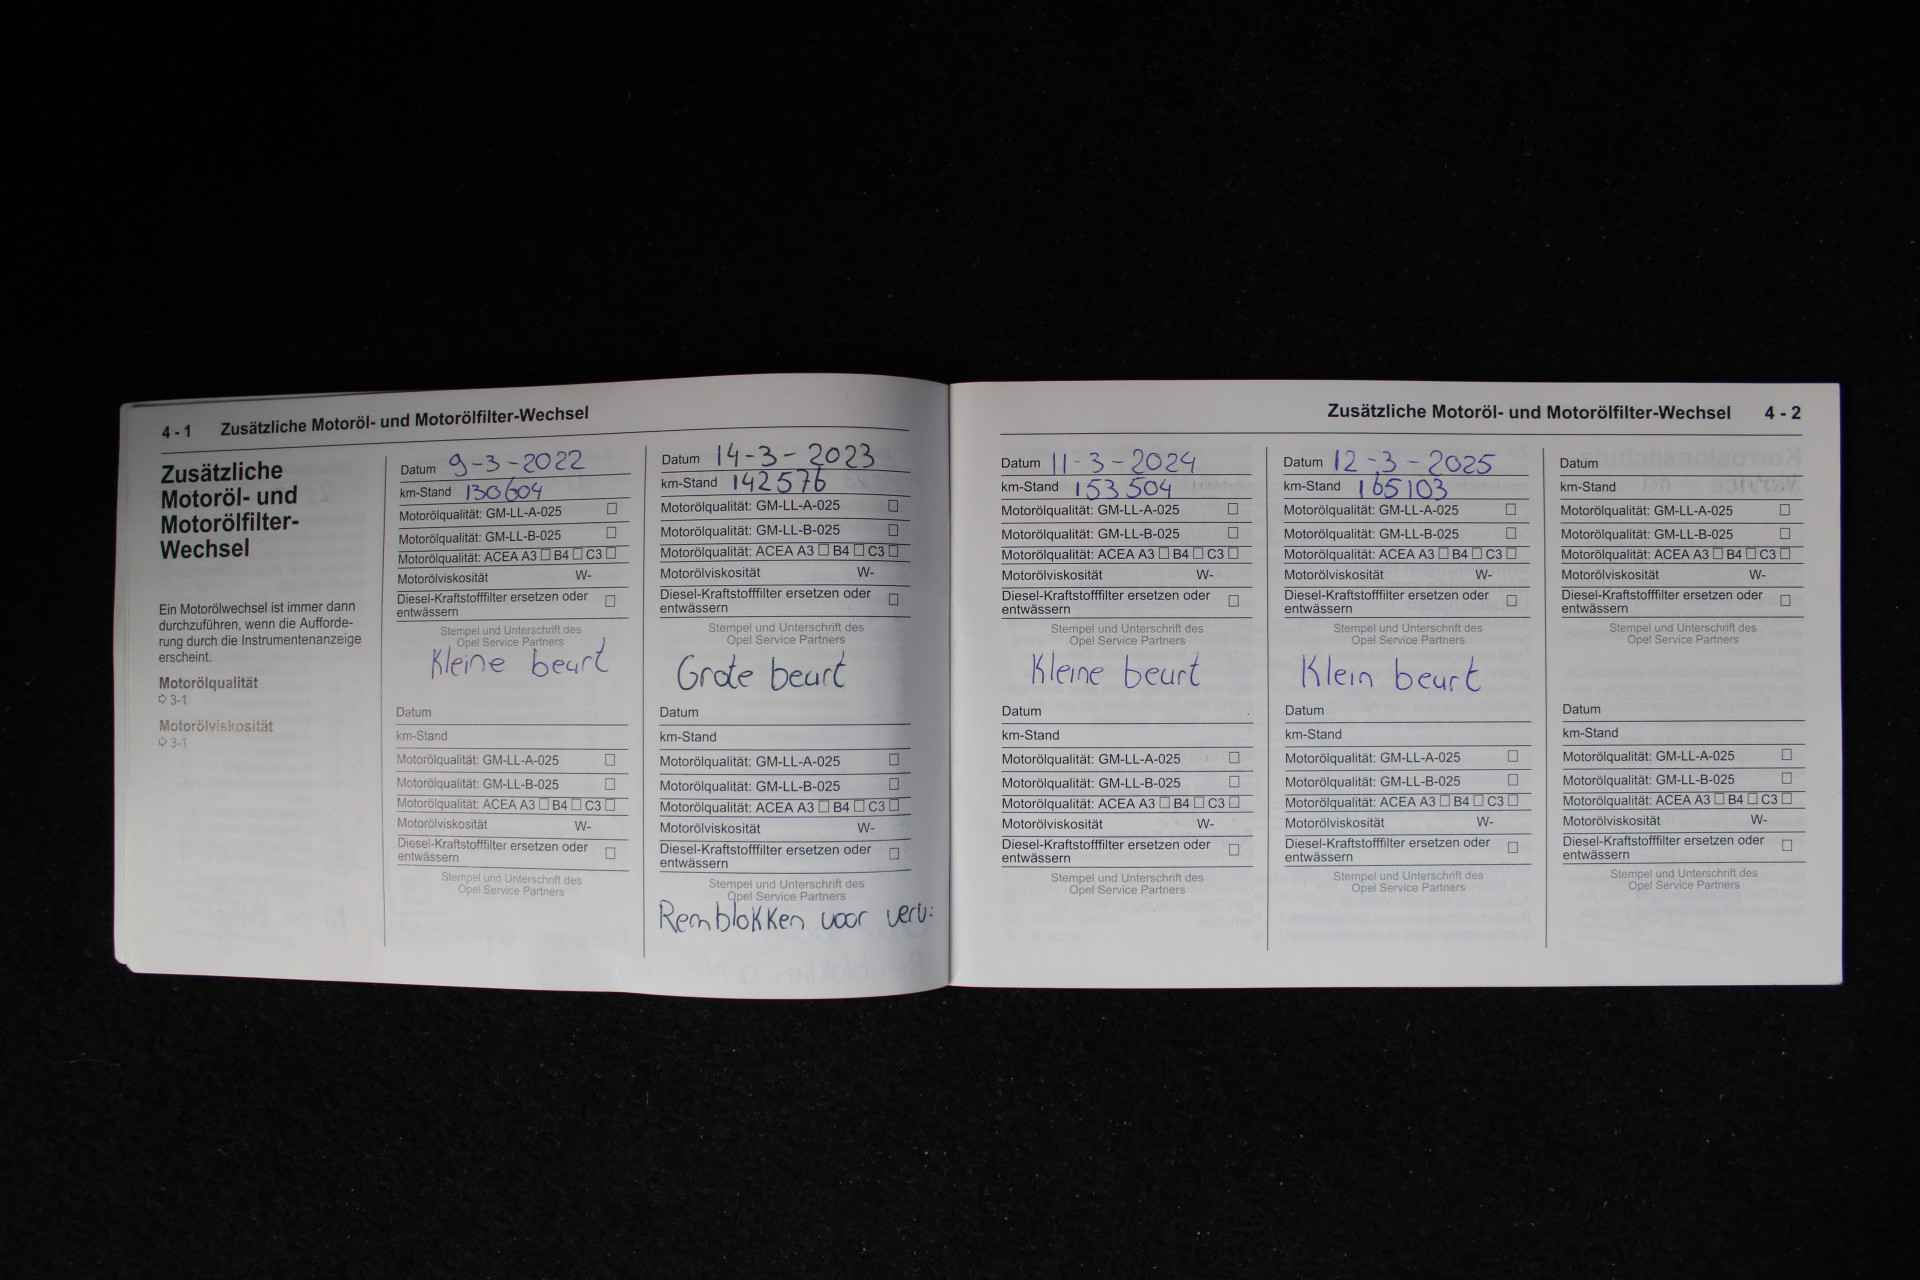 4 - 1 Zusätzliche Motoröl- und Motorölfilter-Wechsel
Zusätzliche
Motoröl- und
Motorölfilter-
Wechsel
Ein Motorölwechsel ist immer dann
durchzuführen, wenn die Aufforde-
rung durch die Instrumentenanzeige
erscheint.
Motorölqualität
➪ 3-1
Motorölviskosität
➪ 3-1
Datum 9-3-2022
km-Stand 130604
Motorölqualität: GM-LL-A-025 ☐
Motorölqualität: GM-LL-B-025 ☐
Motorölqualität: ACEA A3 ☐ B4 ☐ C3 ☐
Motorölviskosität W-
Diesel-Kraftstofffilter ersetzen oder
entwässern ☐
Stempel und Unterschrift des
Opel Service Partners
Kleine beurt
Datum
km-Stand
Motorölqualität: GM-LL-A-025 ☐
Motorölqualität: GM-LL-B-025 ☐
Motorölqualität: ACEA A3 ☐ B4 ☐ C3 ☐
Motorölviskosität W-
Diesel-Kraftstofffilter ersetzen oder
entwässern ☐
Stempel und Unterschrift des
Opel Service Partners
Datum 14-3-2023
km-Stand 142576
Motorölqualität: GM-LL-A-025 ☐
Motorölqualität: GM-LL-B-025 ☐
Motorölqualität: ACEA A3 ☐ B4 ☐ C3 ☐
Motorölviskosität W-
Diesel-Kraftstofffilter ersetzen oder
entwässern ☐
Stempel und Unterschrift des
Opel Service Partners
Grote beurt
Datum
km-Stand
Motorölqualität: GM-LL-A-025 ☐
Motorölqualität: GM-LL-B-025 ☐
Motorölqualität: ACEA A3 ☐ B4 ☐ C3 ☐
Motorölviskosität W-
Diesel-Kraftstofffilter ersetzen oder
entwässern ☐
Stempel und Unterschrift des
Opel Service Partners
Remblokken voor verv:
Zusätzliche Motoröl- und Motorölfilter-Wechsel 4 - 2
Datum 11-3-2024
km-Stand 153504
Motorölqualität: GM-LL-A-025 ☐
Motorölqualität: GM-LL-B-025 ☐
Motorölqualität: ACEA A3 ☐ B4 ☐ C3 ☐
Motorölviskosität W-
Diesel-Kraftstofffilter ersetzen oder
entwässern ☐
Stempel und Unterschrift des
Opel Service Partners
Kleine beurt
Datum
km-Stand
Motorölqualität: GM-LL-A-025 ☐
Motorölqualität: GM-LL-B-025 ☐
Motorölqualität: ACEA A3 ☐ B4 ☐ C3 ☐
Motorölviskosität W-
Diesel-Kraftstofffilter ersetzen oder
entwässern ☐
Stempel und Unterschrift des
Opel Service Partners
Datum 12-3-2025
km-Stand 165103
Motorölqualität: GM-LL-A-025 ☐
Motorölqualität: GM-LL-B-025 ☐
Motorölqualität: ACEA A3 ☐ B4 ☐ C3 ☐
Motorölviskosität W-
Diesel-Kraftstofffilter ersetzen oder
entwässern ☐
Stempel und Unterschrift des
Opel Service Partners
Klein beurt
Datum
km-Stand
Motorölqualität: GM-LL-A-025 ☐
Motorölqualität: GM-LL-B-025 ☐
Motorölqualität: ACEA A3 ☐ B4 ☐ C3 ☐
Motorölviskosität W-
Diesel-Kraftstofffilter ersetzen oder
entwässern ☐
Stempel und Unterschrift des
Opel Service Partners
Datum
km-Stand
Motorölqualität: GM-LL-A-025 ☐
Motorölqualität: GM-LL-B-025 ☐
Motorölqualität: ACEA A3 ☐ B4 ☐ C3 ☐
Motorölviskosität W-
Diesel-Kraftstofffilter ersetzen oder
entwässern ☐
Stempel und Unterschrift des
Opel Service Partners
Datum
km-Stand
Motorölqualität: GM-LL-A-025 ☐
Motorölqualität: GM-LL-B-025 ☐
Motorölqualität: ACEA A3 ☐ B4 ☐ C3 ☐
Motorölviskosität W-
Diesel-Kraftstofffilter ersetzen oder
entwässern ☐
Stempel und Unterschrift des
Opel Service Partners